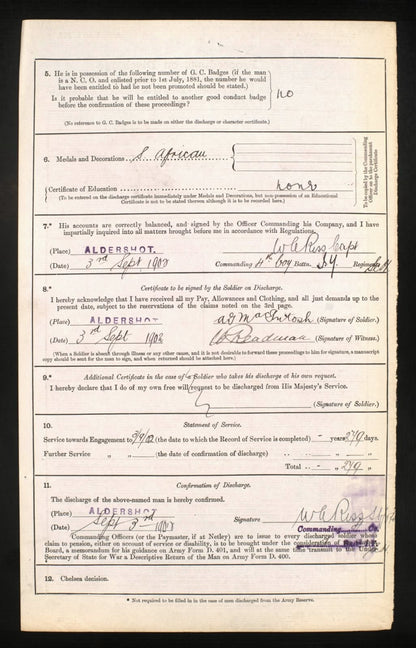 5. He is in possession of the following number of G. C. Badges (if the man
is a N. C. O. and enlisted prior to 1st July, 1881, the number he would
have been entitled to had he not been promoted should be stated.)
Is it probable that he will be entitled to another good conduct badge
before the confirmation of these proceedings?
no
(No reference to G. C. Badges is to be made on either the discharge or character certificate.)
6. Medals and Decorations S. African
Certificate of Education none
(To be entered on the discharge certificate immediately under Medals and Decorations, but non-possession of an Educational
Certificate is not to be stated thereon although it is to be recorded here.)
To be copied by the Commanding
Officer on to the parchment
Discharge Certificate
7.* His accounts are correctly balanced, and signed by the Officer Commanding his Company, and I have
impartially inquired into all matters brought before me in accordance with Regulations.
(Place) ALDERSHOT.
(Date) 3rd Sept 1902 Commanding 4th Coy Battn. I.Y. Regiment
8.* Certificate to be signed by the Soldier on Discharge.
I hereby acknowledge that I have received all my Pay, Allowances and Clothing, and all just demands up to the
present date, subject to the reservations of the claims noted on the 3rd page.
(Place) ALDERSHOT A D MacIntosh (Signature of Soldier.)
(Date) 3rd Sept 1902 Readman (Signature of Witness.)
(When a Soldier is absent through illness or any other cause, and it is not desirable to forward these proceedings to him for signature, a manuscript
copy should be sent for the man to sign, and when returned should be attached here.)
9.* Additional Certificate in the case of a Soldier who takes his discharge at his own request.
I hereby declare that I do of my own free will request to be discharged from His Majesty's Service.
(Signature of Soldier.)
10. Statement of Service.
Service towards Engagement to 3/9/02 (the date to which the Record of Service is completed) - years 279 days.
Further Service " (the date of confirmation of discharge) - " "
Total - " 279 "
11. Confirmation of Discharge.
The discharge of the above-named man is hereby confirmed.
(Place) ALDERSHOT
(Date) Sept 3rd 1902 Signature
Commanding
Commanding Officers (or the Paymaster, if at Netley) are to issue to every discharged soldier whose
claim to pension, either on account of service or disability, is to be brought under the consideration of
Board, a memorandum for his guidance on Army Form D. 401, and will at the same time transmit to the Under
Secretary of State for War a Descriptive Return of the Man on Army Form D. 400.
12. Chelsea decision.
* Not required to be filled in in the case of men discharged from the Army Reserve.